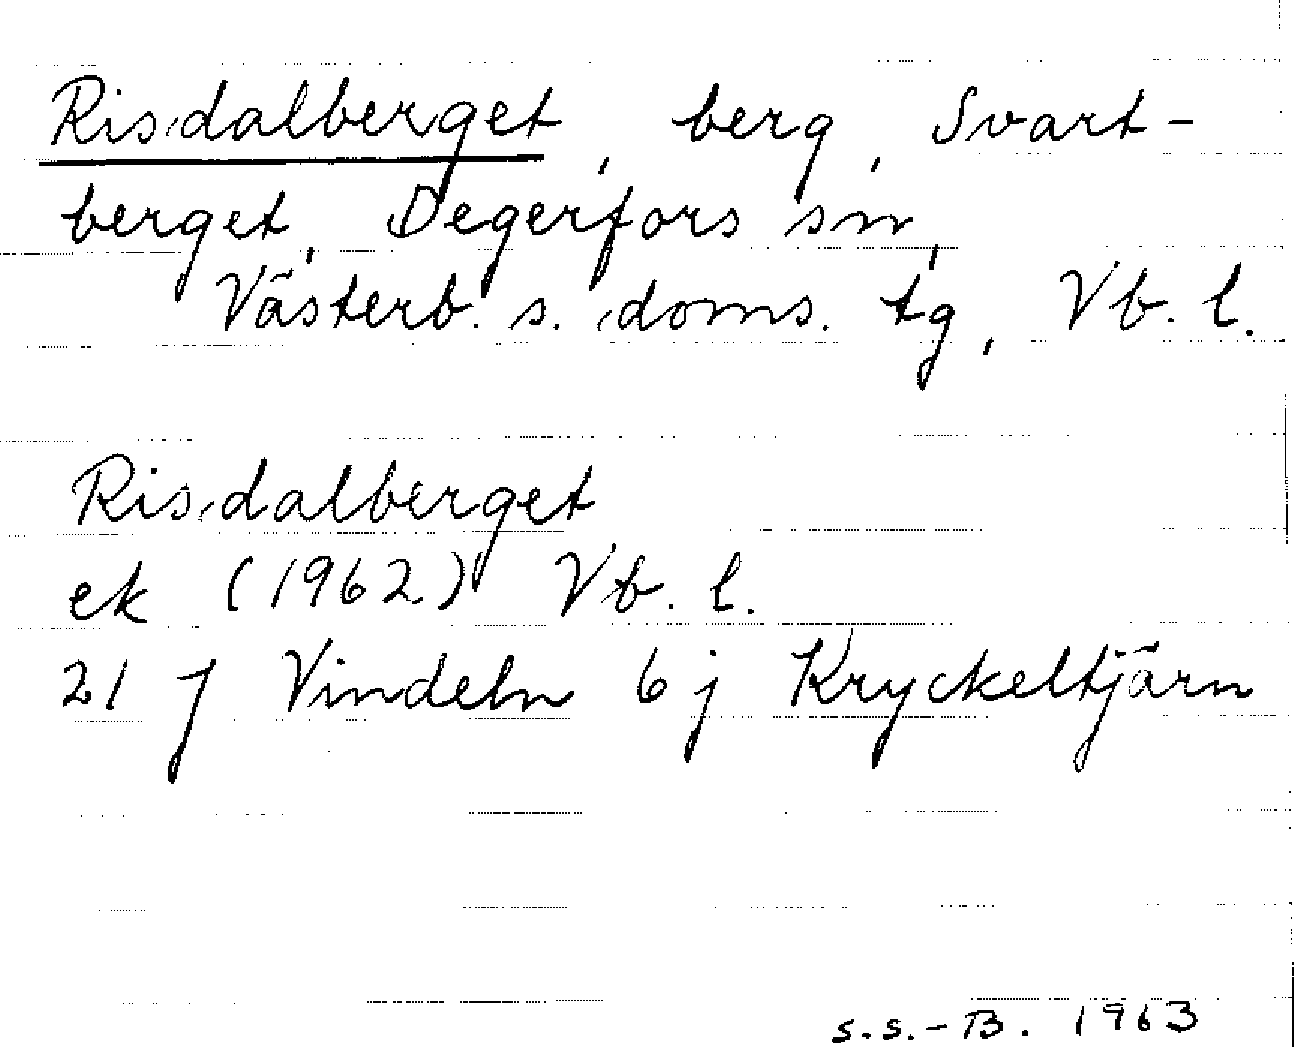 Risdalberget, berg, Svart-
berget, Degerfors sn,
Västerb. s. doms. tg, Vb. l.
Risdalberget
ek (1962) Vb. l.
21 J Vindeln 6 j Kryckeltjärn
S.S.-B. 1963